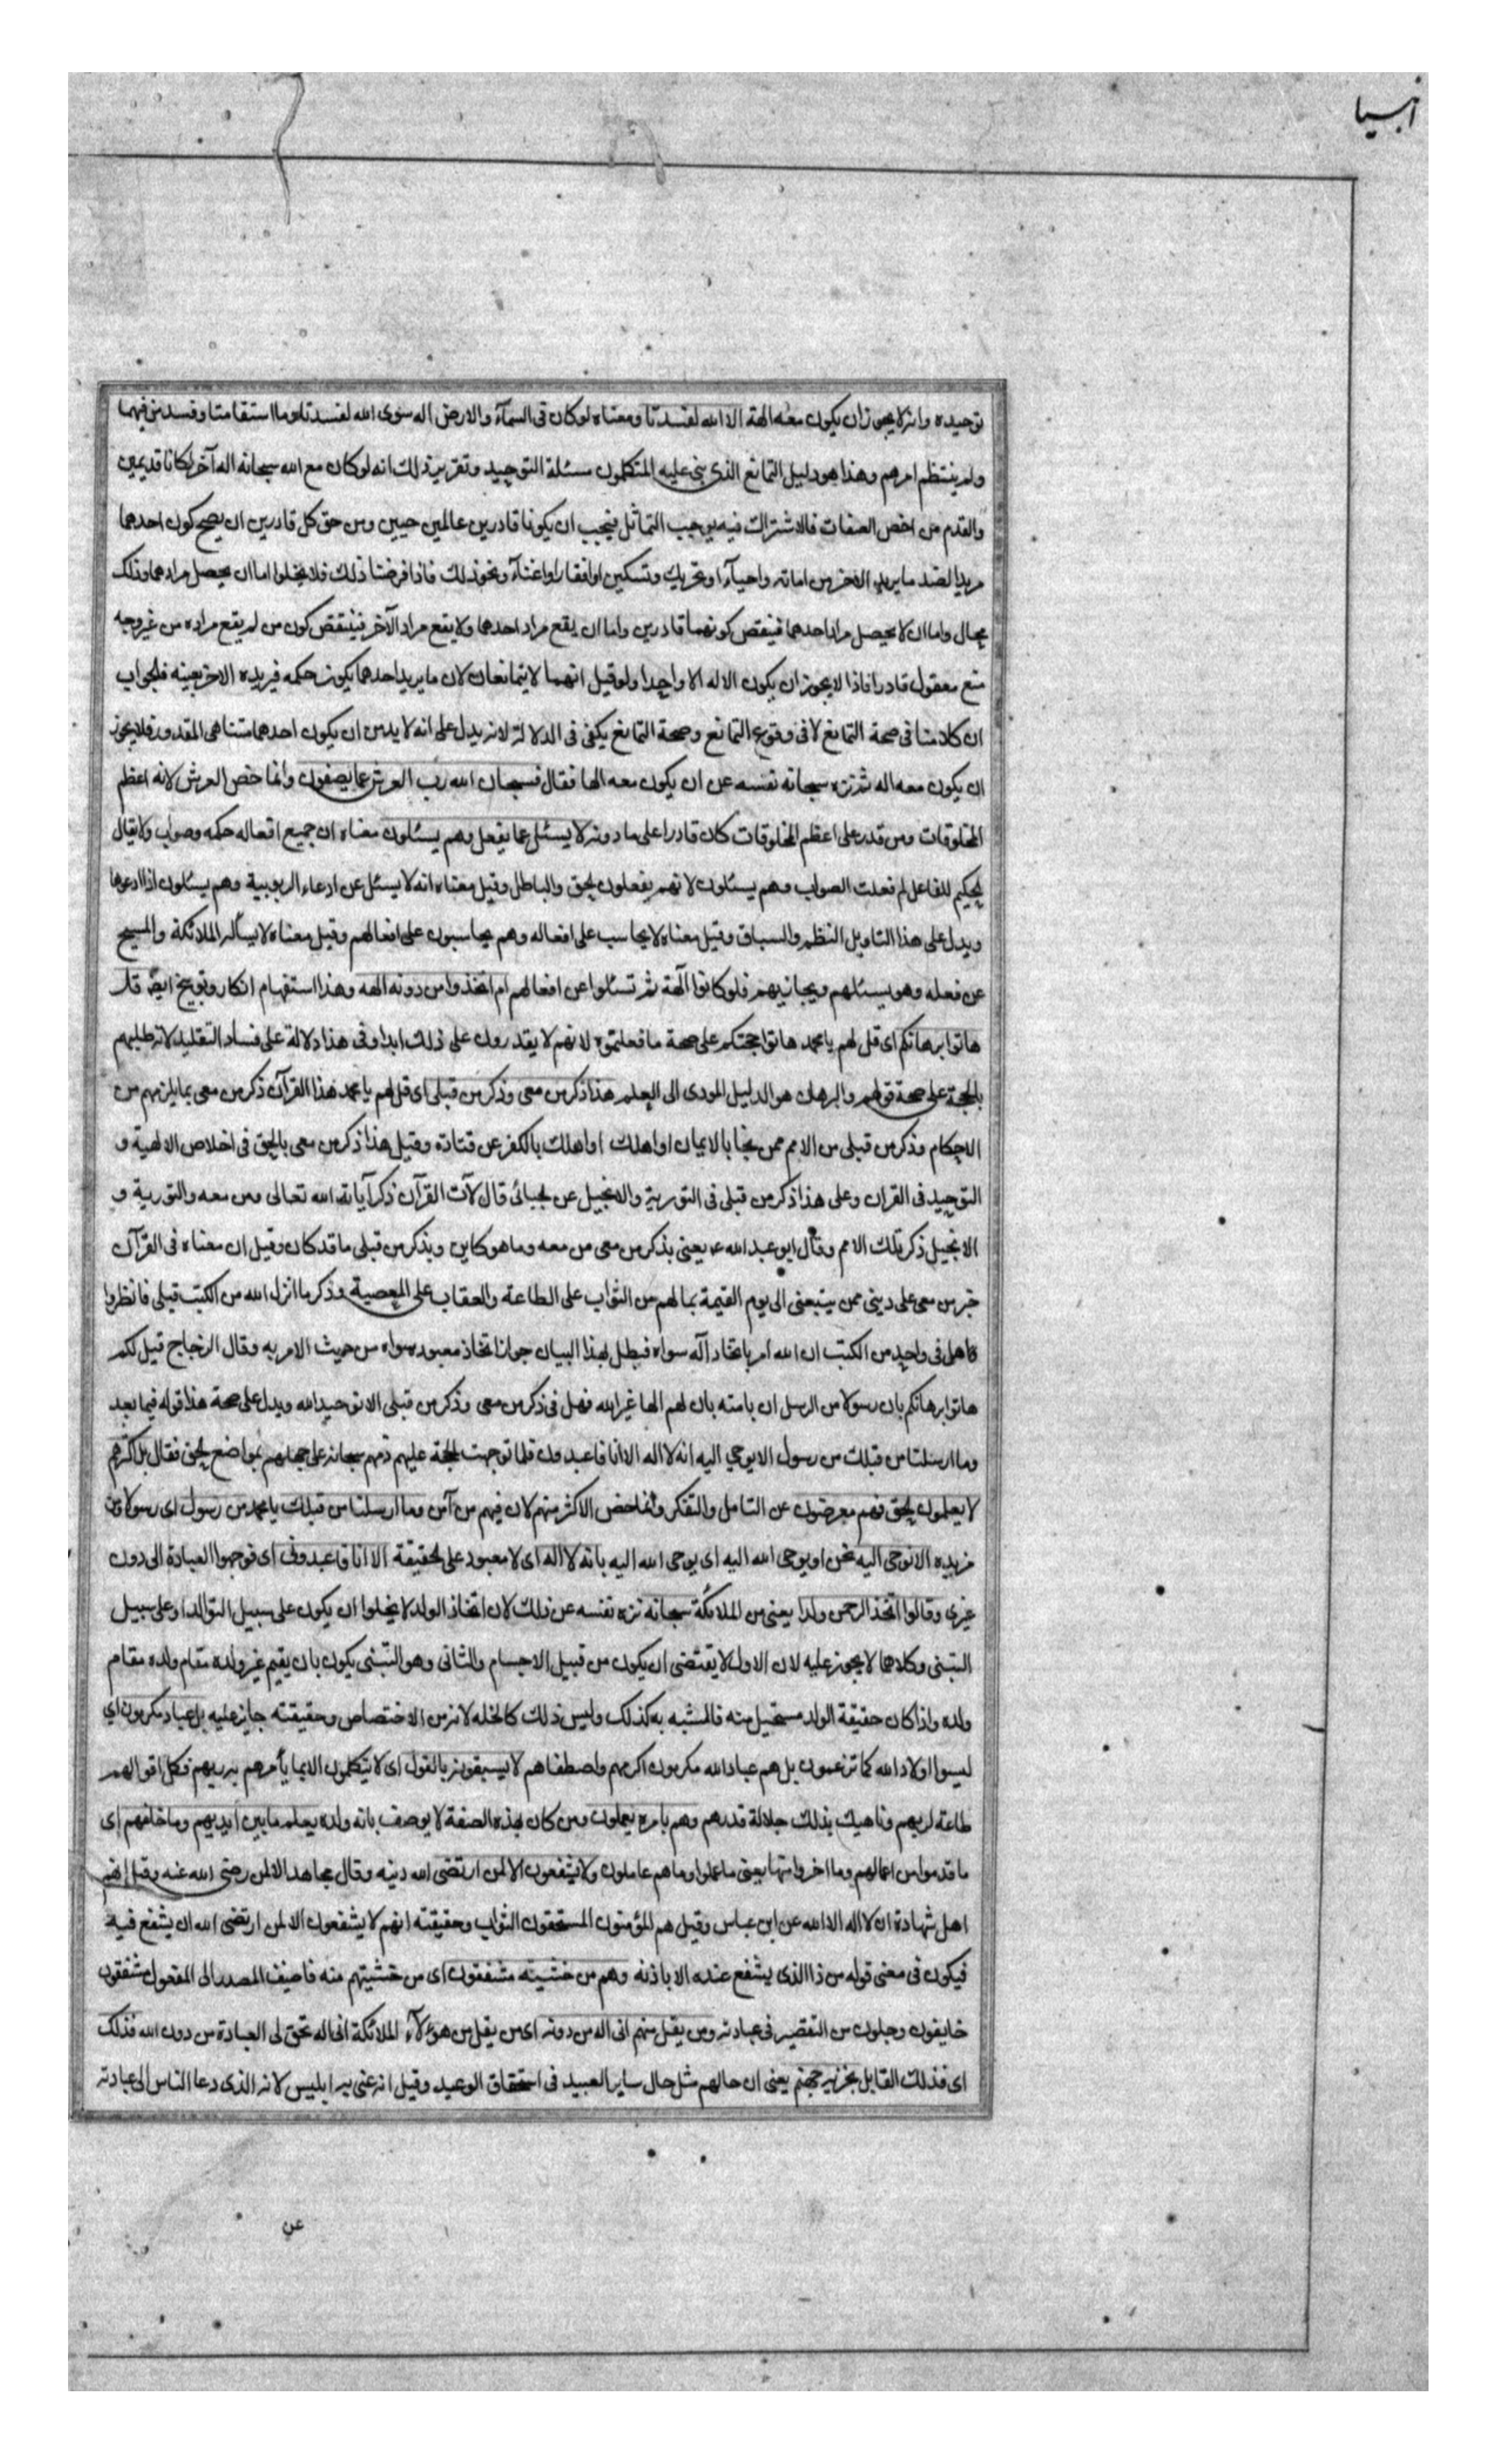 انبيا
توحيده وانه لا يجوز ان يكون معه الهة الا الله لفسدتا ومعناه لو كان فى السمآء والارض اله سوى الله لفسدتا وما استقامتا وفسد من فيهما
ولم ينتظم امرهم وهذا هو دليل التمانع الذى بنى عليه المتكلمون مسئلة التوحيد وتقرير ذلك انه لو كان مع الله سبحانه اله آخر لكانا قديمين
والقدم من اخص الصفات فالاشتراك فيه يوجب التماثل فيجب ان يكونا قادرين عالمين حيين ومن حق كل قادرين ان يصح كون احدهما
مريدا لضد ما يريده الاخر من اماته واحيآء او تحريك وتسكين او افقار او اغنآء ونحو ذلك فاذا فرضنا ذلك فلا يخلوا اما ان يحصل مرادهما وذلك
محال واما ان لا يحصل مراد احدهما فينقض كونهما قادرين واما ان يقع مراد احدهما ولا يقع مراد الآخر فينتقض كون من لم يقع مراده من غير وجه
منع معقول قادرا فاذا لا يجوز ان يكون الاله الا واحدا ولو قيل انهما لا يتمانعان لان ما يريد احدهما يكون حكمه فيريده الاخر بعينه فالجواب
ان كلامنا فى صحة التمانع لا فى وقوع التمانع وصحة التمانع يكفى فى الدلالة لانه يدل على انه لا بد من ان يكون احدهما متناهى المقدور فلا يجوز
ان يكون معه اله ثم نزه سبحانه نفسه عن ان يكون معه الها فقال فسبحان الله رب العرش عما يصفون وانما خص العرش لانه اعظم
المخلوقات ومن قدر على اعظم المخلوقات كان قادرا على ما دونه لا يسئل عما يفعل وهم يسئلون معناه ان جميع افعاله حكمه وصواب ولا يقال
للحكيم للفاعل لم فعلت الصواب وهم يسئلون لانهم يفعلون الحق والباطل وقيل معناه انه لا يسئل عن ادعاء الربوبية وهم يسئلون اذا ادعوها
ويدل على هذا التاويل النظم والسباق وقيل معناه لا يحاسب على افعاله وهم يحاسبون على افعالهم وقيل معناه لا يسأله الملائكة والمسيح
عن فعله وهو يسئلهم ويجازيهم فلو كانوا آلهة ثم تسئلوا عن افعالهم ام اتخذوا من دونه الهة وهذا استفهام انكار وتوبيخ ايضً قل
هاتوا برهانكم اى قل لهم يا محمد هاتوا حجتكم على صحة ما فعلتموه لانهم لا يقدرون على ذلك ابدا وفى هذا دلالة على فساد التقليد لانه طلبهم
بالحجة على صحة قولهم والبرهان هو الدليل المودى الى العلم هذا ذكر من معى وذكر من قبلى اى قل لهم يا محمد هذا القرآن ذكر من معى بما يلزمهم من
الاحكام وذكر من قبلى من الامم ممن نجا بالايمان او اهلك اواهلك بالكفر عن قتادة وقيل هذا ذكر من معى بالحق فى اخلاص الالهية و
التوحيد فى القران وعلى هذا ذكر من قبلى فى التورية والانجيل عن الجبائى قال لآت القرآن ذكر آياته الله تعالى ومن معه والتورية و
الانجيل ذكر تلك الامم وقال ابو عبد الله ع يعنى بذكر من معى من معه وما هو كاين وبذكر من قبلى ما قد كان وقيل ان معناه فى القرآن
خبر من معى على دينى ممن يتبعنى الى يوم القيمة بما لهم من الثواب على الطاعة والعقاب على المعصية وذكر ما انزل الله من الكتب قبلى فانظروا
فاهل فى واحد من الكتب ان الله امر باتخاذ اله سواه فبطل بهذا البيان جواز اتخاذ معبود سواه من حيث الامر به وقال الزجاج قيل لكم
هاتوا برهانكم بان رسولا من الرسل ان بامته بان لهم الها غير الله فهل فى ذكر من معى وذكر من قبلى الا توحيد الله ويدل على صحة هذا قوله فيما بعد
وما ارسلنا من قبلك من رسول الا يوحى اليه انه لا اله الا انا فاعبدون فلما توجهت الحجة عليهم ذمهم سبحانه على جهلهم بمواضع الحق فقال بل اكثرهم
لا يعلمون الحق فهم معرضون عن التامل والتفكر وانما خص الاكثر منهم لان فيهم من آمن وما ارسلنا من قبلك يا محمد من رسول اى رسولا ومن
مزيده الا نوحى اليه نحن او يوحى الله اليه اى يوحى الله اليه بانه لا اله اى لا معبود على الحقيقة الا انا فاعبدونى اى فوجهوا العبادة الى دون
غيرى وقالوا اتخذ الرحمن ولدا يعنى من الملائكة سبحانه نزه نفسه عن ذلك لان اتخاذ الولد لا يخلوا ان يكون على سبيل التوالد او على سبيل
التبنى وكلاهما لا يجوز عليه لان الاول لا يقتضى ان يكون من قبيل الاجسام والثانى وهو التبنى يكون بان يقيم غير ولده مقام ولده مقام
ولده واذا كان حقيقة الولد مستحيل منه فالمشبه به كذلك وليس ذلك كالخله لانه من الاختصاص وحقيقته جايز عليه بل عباد مكرمون اى
ليسوا اولاد الله كما تزعمون بل هم عباد الله مكرمون اكرمهم واصطفاهم لا يسبقونه بالقول اى لا يتكلمون الا بما يأمرهم به ربهم فكل اقوالهم
طاعة لربهم وناهيك بذلك جلالة قدرهم وهم بامره يعملون ومن كان بهذه الصفة لا يوصف بانه ولده يعلم ما بين ايديهم وما خلفهم اى
ما قدموا من اعمالهم وما اخروا منها يعنى ما عملوا وما هم عاملون ولا يشفعون الا لمن ارتضى الله دينه وقال مجاهد الا لمن رضى الله عنه وقيل انهم
اهل شهادة ان لا اله الا الله عن ابن عباس وقيل هم المؤمنون المستحقون الثواب وحقيقته انهم لا يشفعون الا لمن ارتضى الله ان يشفع فيه
فيكون فى معنى قوله من ذا الذى يشفع عنده الا باذنه وهم من خشيته مشفقون اى من خشيتهم منه فاضيف المصدر الى المفعول مشفقون
خايفون وجلون من التقصير فى عبادته ومن يقل منهم انى اله من دونه اى من يقل من هؤلآء الملائكة انى اله تحق لى العبادة من دون الله فذلك
اى فذلك القايل نجزيه جهنم يعنى ان حالهم مثل حال ساير العبيد فى استحقاق الوعيد وقيل انه عنى به ابليس لانه الذى دعا الناس الى عبادته
عن